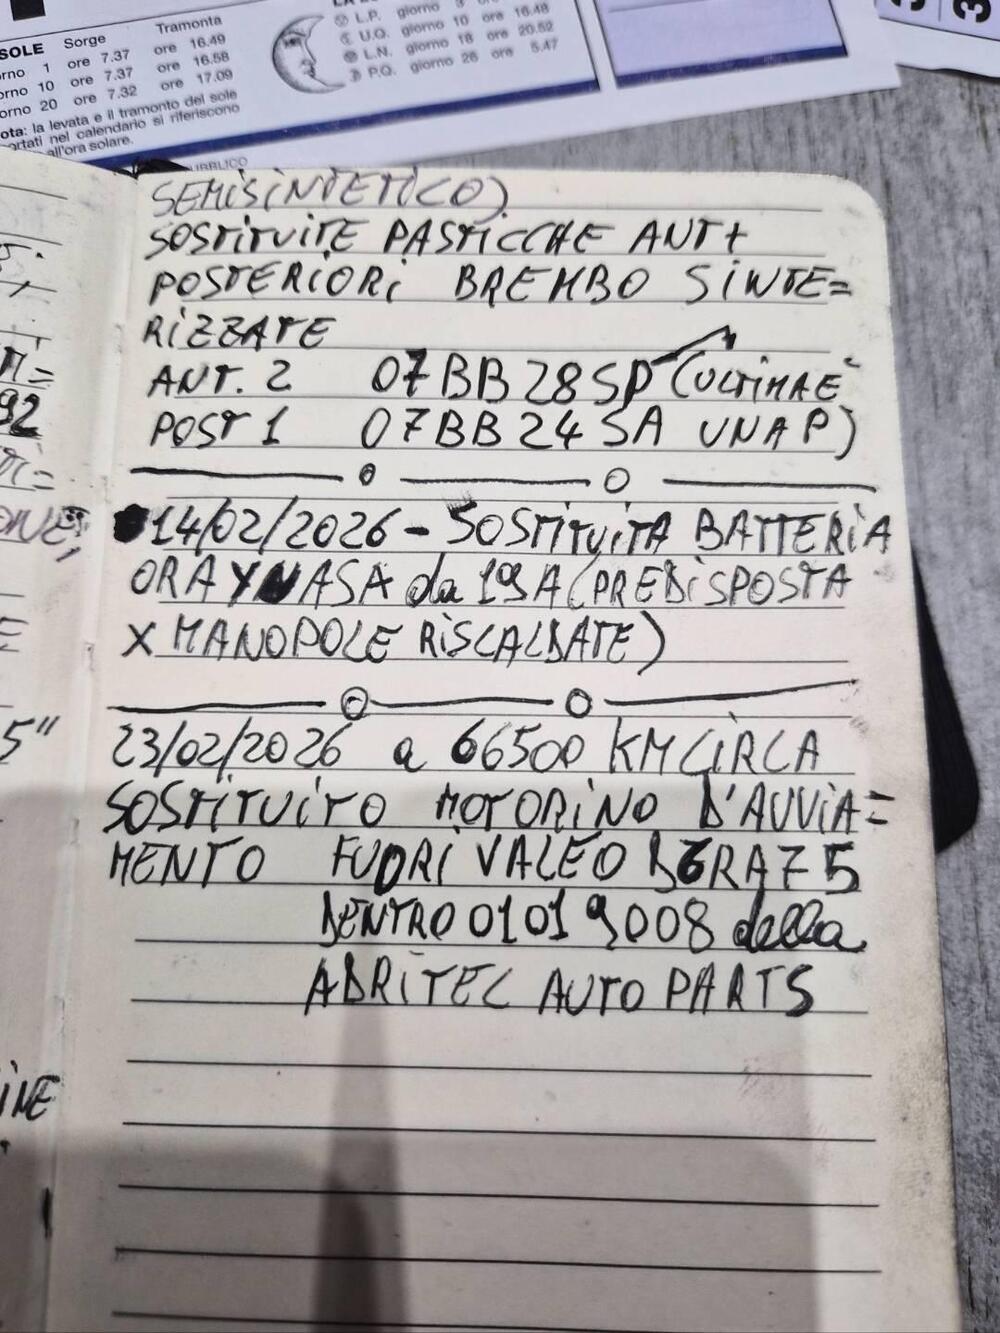 SOLE Sorge Tramonta
orno 1 ore 7.37 ore 16.49
orno 10 ore 7.37 ore 16.58
orno 20 ore 7.32 ore 17.09
ota: la levata e il tramonto del sole
ortati nel calendario si riferiscono
all'ora solare.
L.P. giorno 3 ore
U.Q. giorno 10 ore 16.48
L.N. giorno 18 ore 20.52
P.Q. giorno 26 ore 5.47
UBBLICO
SEMISINTETICO)
SOSTITUITE PASTICCHE ANT+
POSTERIORI BREMBO SINTE=
RIZZATE
ANT. 2 07BB28SP (ULTIMA E
POST 1 07BB24SA UNA P)
14/02/2026 - SOSTITUITA BATTERIA
ORA YUASA da 19A (PREDISPOSTA
X MANOPOLE RISCALDATE)
23/02/2026 a 66500 KM CIRCA
SOSTITUITO MOTORINO D'AVVIA=
MENTO FUORI VALEO D6RA75
DENTRO 01019008 della
ABRITEC AUTO PARTS
92
5"
INE